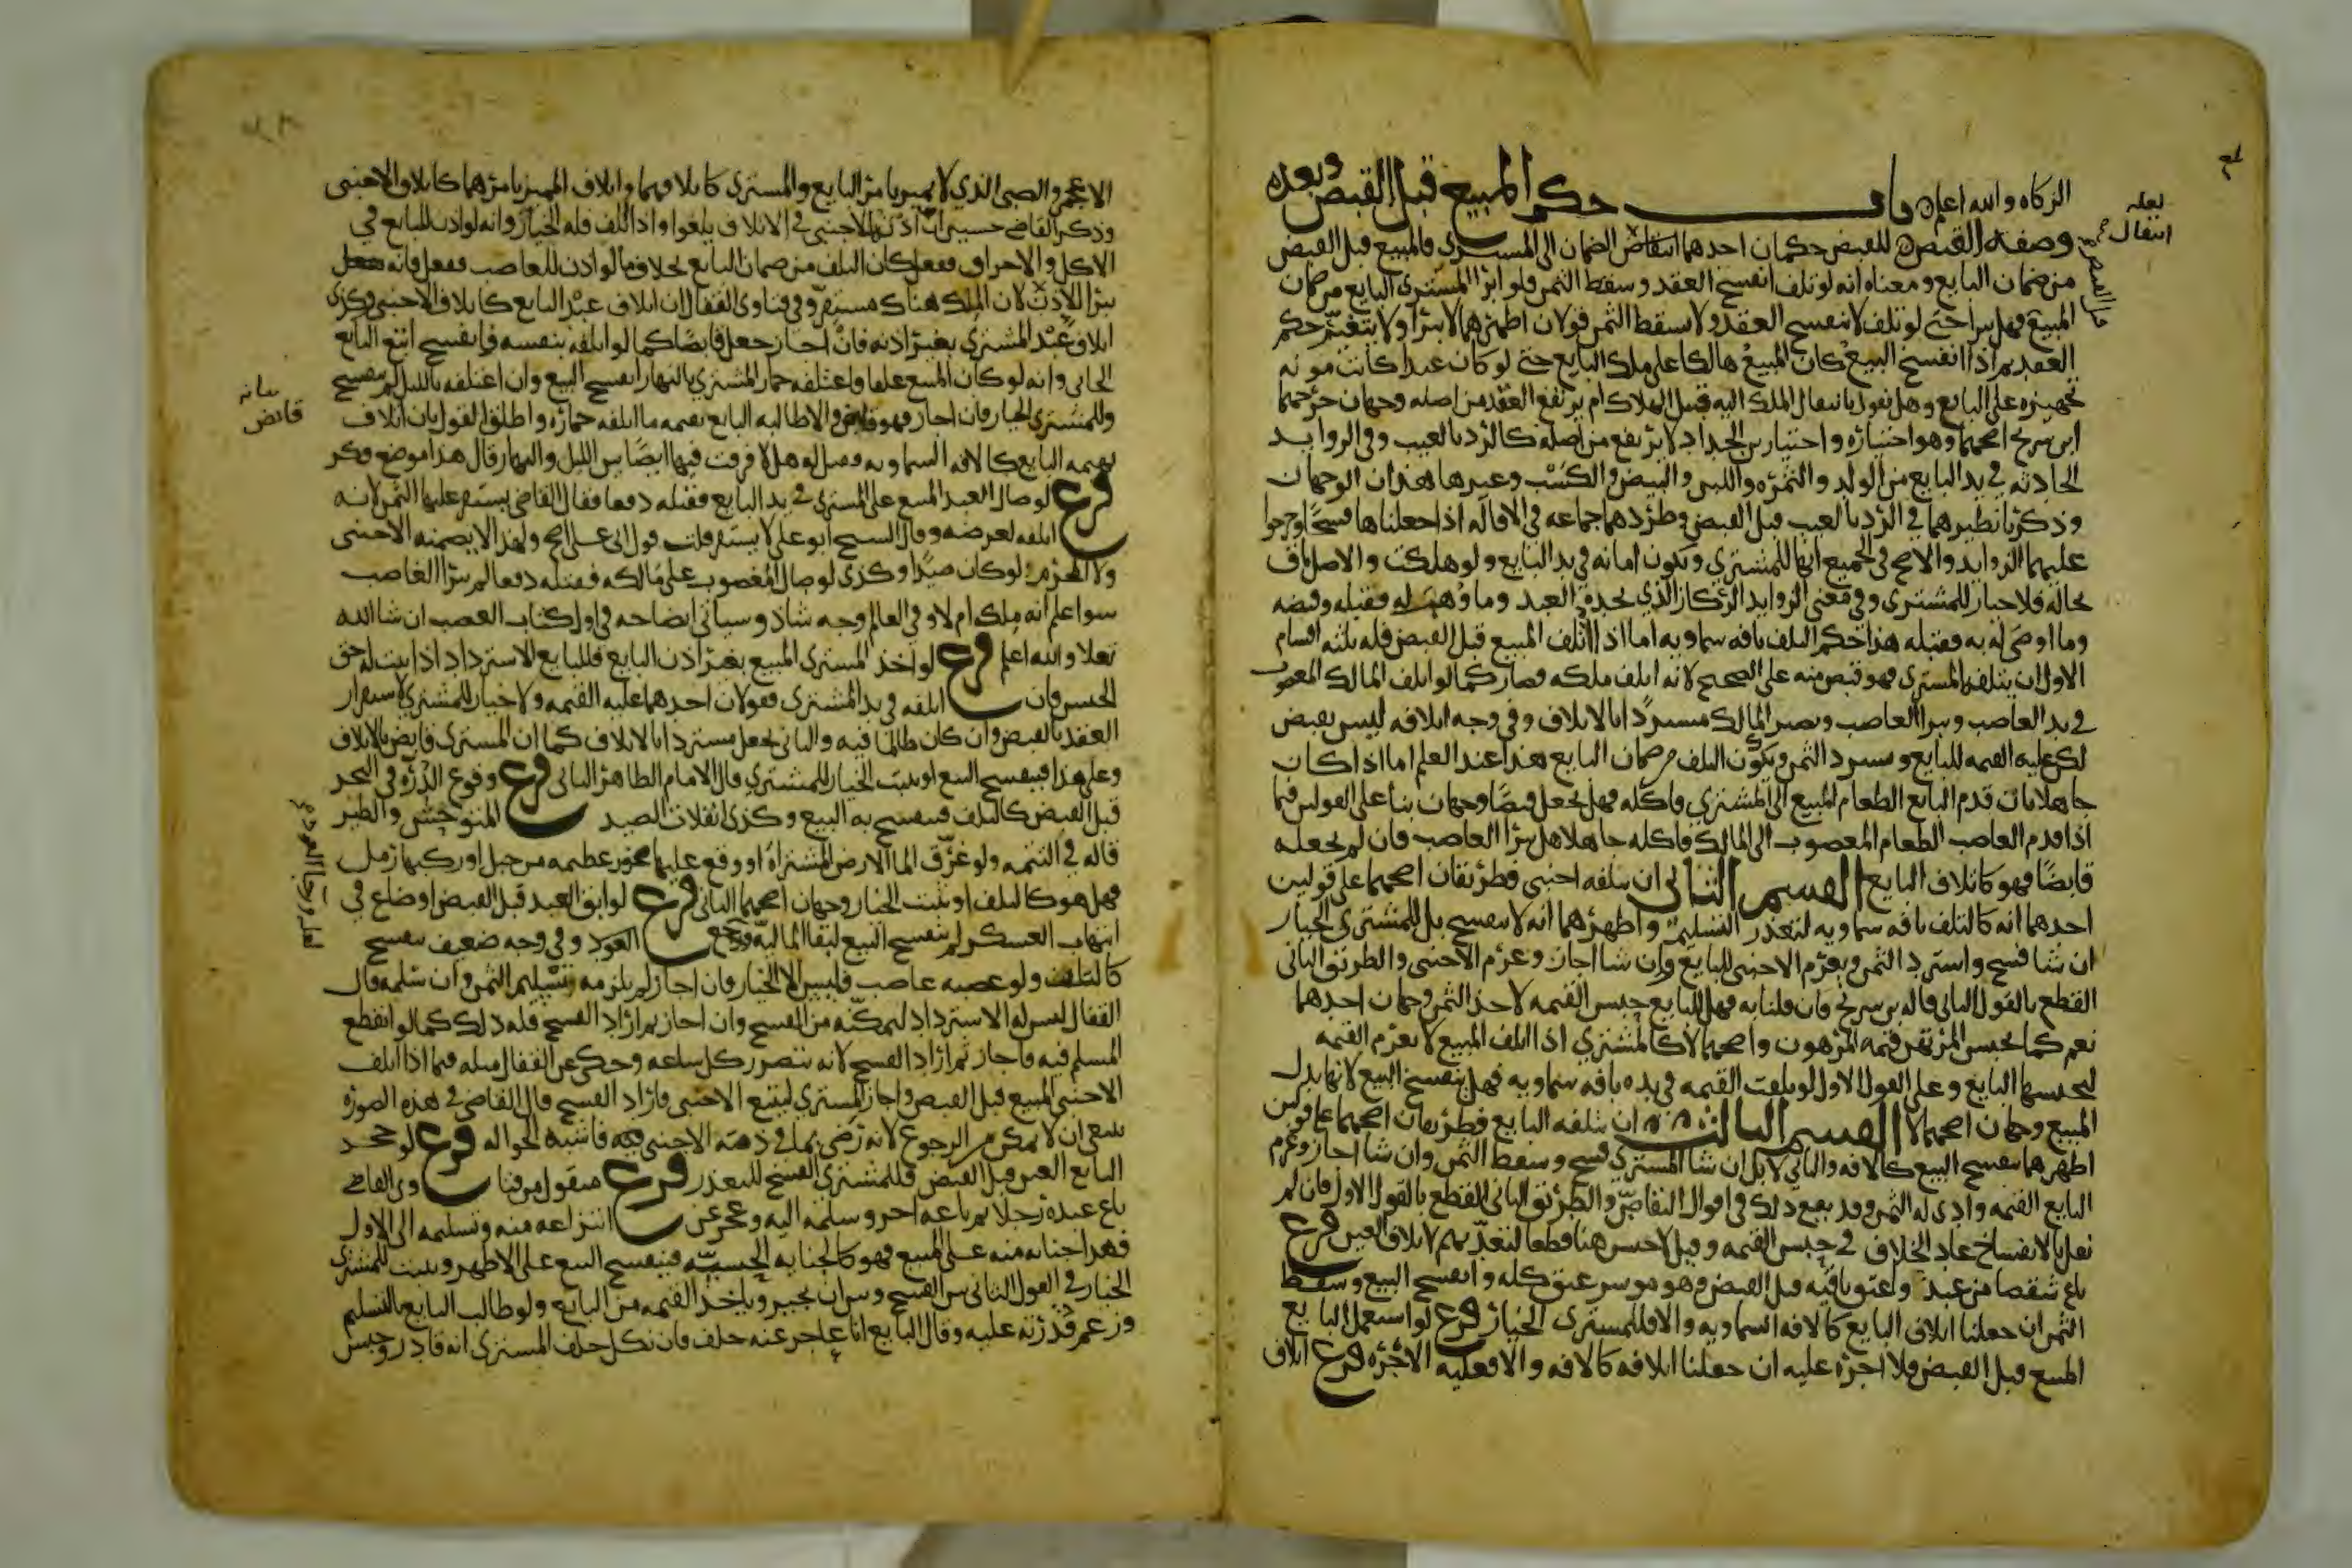 الزكاه والله اعلم باب حكم المبيع قبل القبض وبعده
وصفه القبض للقبض حكمان احدهما انتقاض الضمان الى المشترى فالمبيع قبل القبض
من ضمان البايع ومعناه انه لو تلف انفسخ العقد وسقط الثمن فلو ابرا المشترى البايع من ضمان
المبيع فهل يبرا حتى لو تلف لا ينفسخ العقد ولا يسقط الثمن قولان اظهرهما لا يبرا ولا يتغير حكم
العقد ثم اذا انفسخ البيع كان المبيع هالكا على ملك البايع حتى لو كان عبدا كانت مونه
تجهيزه على البايع وهل نقول بانتقال الملك اليه قبيل الهلاك ام يرتفع العقد من اصله وجهان خرجهما
ابن سريج اصحهما وهو اختياره واختيار بن الحداد لا يرتفع من اصله كالرد بالعيب وفى الزوايد
الحادثه في يد البايع من الولد والثمره واللبن والبيض والكسب وغيرها هذان الوجهان
وذكرنا نظيرهما في الرد بالعيب قبل القبض وطردهما جماعه في الاقاله اذا جعلناها فسخا وخرجوا
عليهما الزوايد والاصح في الجميع انها للمشتري وتكون امانه في يد البايع ولو هلكت والاصل باق
بحاله فلا خيار للمشترى وفي معنى الزوايد الركاز الذي يجده العبد وما وهب له فقبله وقبضه
وما اوصى له به فقبله هذا حكم التلف بافه سماويه اما اذا اتلف المبيع قبل القبض فله ثلثه اقسام
الاول ان يتلفه المشترى فهو قبض منه على الصحيح لانه اتلف ملكه فصار كما لو اتلف المالك المغصوب
في يد الغاصب ويبرا الغاصب ويصير المالك مستردا بالاتلاف وفي وجه اتلافه ليس بقبض
لكن عليه القيمه للبايع ويسترد الثمن ويكون التلف من ضمان البايع هذا عند العلم اما اذا كان
جاهلا بان قدم البايع الطعام المبيع الى المشتري فاكله فهل يجعل قبضا وجهان بنا على القولين فيما
اذا قدم الغاصب الطعام المغصوب الى المالك فاكله جاهلا هل يبرا الغاصب فان لم نجعله
قابضا فهو كاتلاف البايع القسم الثاني ان يتلفه اجنبي فطريقان اصحهما على قولين
احدهما انه كالتلف بافه سماويه لتعذر التسليم واظهرهما انه لا ينفسخ بل للمشتري الخيار
ان شا فسخ واسترد الثمن ويغرم الاجنبي للبايع وان شا اجاز وغرم الاجنبى والطريق الثانى
القطع بالقول الثانى قاله بن سريج فان قلنا به فهل للبايع حبس القيمه لاخذ الثمن وجهان احدهما
نعم كما يحبس المرتهن قيمه المرهون واصحهما لا كالمشتري اذا اتلف المبيع لا يغرم القيمه
ليحبسها البايع وعلى القول الاول لو تلفت القيمه في يده بافه سماويه فهل ينفسخ البيع لانها بدل
المبيع وجهان اصحهما لا القسم الثالث ان يتلفه البايع فطريقان اصحهما على قولين
اظهرهما ينفسخ البيع كالافه والثاني لا بل ان شا المشتري فسخ وسقط الثمن وان شا اجاز وغرم
البايع القيمه وادى له الثمن وقد يقع ذلك في اقوال التقاص والطريق الثانى القطع بالقول الاول فان لم
نقل بالانفساخ عاد الخلاف في حبس القيمه وقيل لا حبس هنا قطعا لتعديه باتلاف العين فرع
باع شقصا من عبد واعتق باقيه قبل القبض وهو موسر عتق كله وانفسخ البيع وسقط
الثمن ان جعلنا اتلاف البايع كالافه السماويه والا فللمشترى الخيار فرع لو استعمل البايع
المبيع قبل القبض فلا اجره عليه ان جعلنا اتلافه كالافه والا فعليه الاجره فرع اتلاف
لعله
انتقال
الاعجمي والصبى الذي لا يميز بامر البايع والمشترى كاتلافهما واتلاف المميز بامرهما كاتلاف الاجنبى
وذكر القاضي حسين ان اذن للاجنبي في الاتلاف يلغوا واذا اتلف فله الخيار وانه لو اذن للبايع في
الاكل والاحراق ففعل كان التلف من ضمان البايع بخلاف ما لو اذن للغاصب ففعل فانه
يبرا للاذن لان الملك هناك مستقر وفي فتاوى القفال ان اتلاف عبد البايع كاتلاف الاجنبي وكذى
اتلاف عبد المشتري بغير اذنه فان اجاز جعل قابضا كما لو اتلفه بنفسه وان فسخ اتبع البايع
الجانى وانه لو كان المبيع علفا واعتلفه حمار المشتري بالنهار انفسخ البيع وان اعتلفه بالليل لم ينفسخ
وللمشتري الخيار فان اجاز فهو قابض والا طالبه البايع بقيمه ما اتلفه حماره واطلق القول بان اتلاف
بهيمه البايع كالافه السماويه وقيل له هلا فرقت فيها ايضا بين الليل والنهار قال هذا موضع فكر
فرع لو صال العبد المبيع على المشترى في يد البايع فقتله دفعا فقال القاضي يستقر عليه الثمن لانه
اتلفه لغرضه وقال الشيخ ابو على لا يستقر قلت قول ابى على اصح ولهذا لا يضمنه الاجنبى
ولا المحرم لو كان صيدا وكذى لو صال المغصوب على مالكه فقتله دفعا لم يبرا الغاصب
سوا علم انه ملكه ام لا وفي العالم وجه شاذ وسياتي ايضاحه في اول كتاب الغصب ان شا الله
تعلا والله اعلم فرع لو اخذ المشترى المبيع بغير اذن البايع فللبايع الاسترداد اذا ثبت له حق
الحبس فان اتلفه في يد المشترى فقولان احدهما عليه القيمه ولا خيار للمشتري لاستقرار
العقد بالقبض وان كان ظالما فيه والثانى يجعل مستردا بالاتلاف كما ان المشترى قابض بالاتلاف
وعلى هذا فينفسخ البيع او يثبت الخيار للمشتري قال الامام الظاهر الثانى فرع وقوع الدره في البحر
قبل القبض كالتلف فينفسخ به البيع وكذى انفلات الصيد المتوحش والطير
قاله في التتمه ولو غرق الما الارض المشتراه او وقع عليها صخور عظيمه من جبل او ركبها رمل
فهل هو كالتلف او يثبت الخيار وجهان اصحهما الثانى فرع لو ابق العبد قبل القبض او ضاع في
انتهاب العسكر لم ينفسخ البيع لبقا الماليه العود وفى وجه ضعيف ينفسخ
كالتلف ولو غصبه غاصب فليس الا الخيار فان اجاز لم يلزمه تسليم الثمن وان سلمه قال
القفال ليس له الاسترداد لتمكنه من الفسخ وان اجاز ثم اراد الفسخ فله ذلك كما لو انقطع
المسلم فيه فاجاز ثم اراد الفسخ لانه يتضرر كل ساعه وحكى عن القفال مثله فيما اذا اتلف
الاجنبى المبيع قبل القبض واجاز المشترى ليتبع الاجنبى فاراد الفسخ قال القاضي في هذه الصوره
ينبغي ان لا يمكن من الرجوع لانه رضى بما في ذمه الاجنبي فاشبه الحواله فرع لو جحد
البايع العين قبل القبض فللمشترى الفسخ للتعذر فرع منقول من فتاوى القاضي
باع عبده رجلا ثم باعه اخر وسلمه اليه وعجز عن انتزاعه منه وتسليمه الى الاول
فهذا جنايه منه على المبيع فهو كالجنايه الحسيه فينفسخ البيع على الاظهر ويثبت للمشترى
الخيار في القول الثانى بين الفسخ وبين ان يجيز وياخذ القيمه من البايع ولو طالب البايع بالتسليم
وزعم قدرته عليه وقال البايع انا عاجز عنه حلف فان نكل حلف المشترى انه قادر وحبس
بيانه
قابض